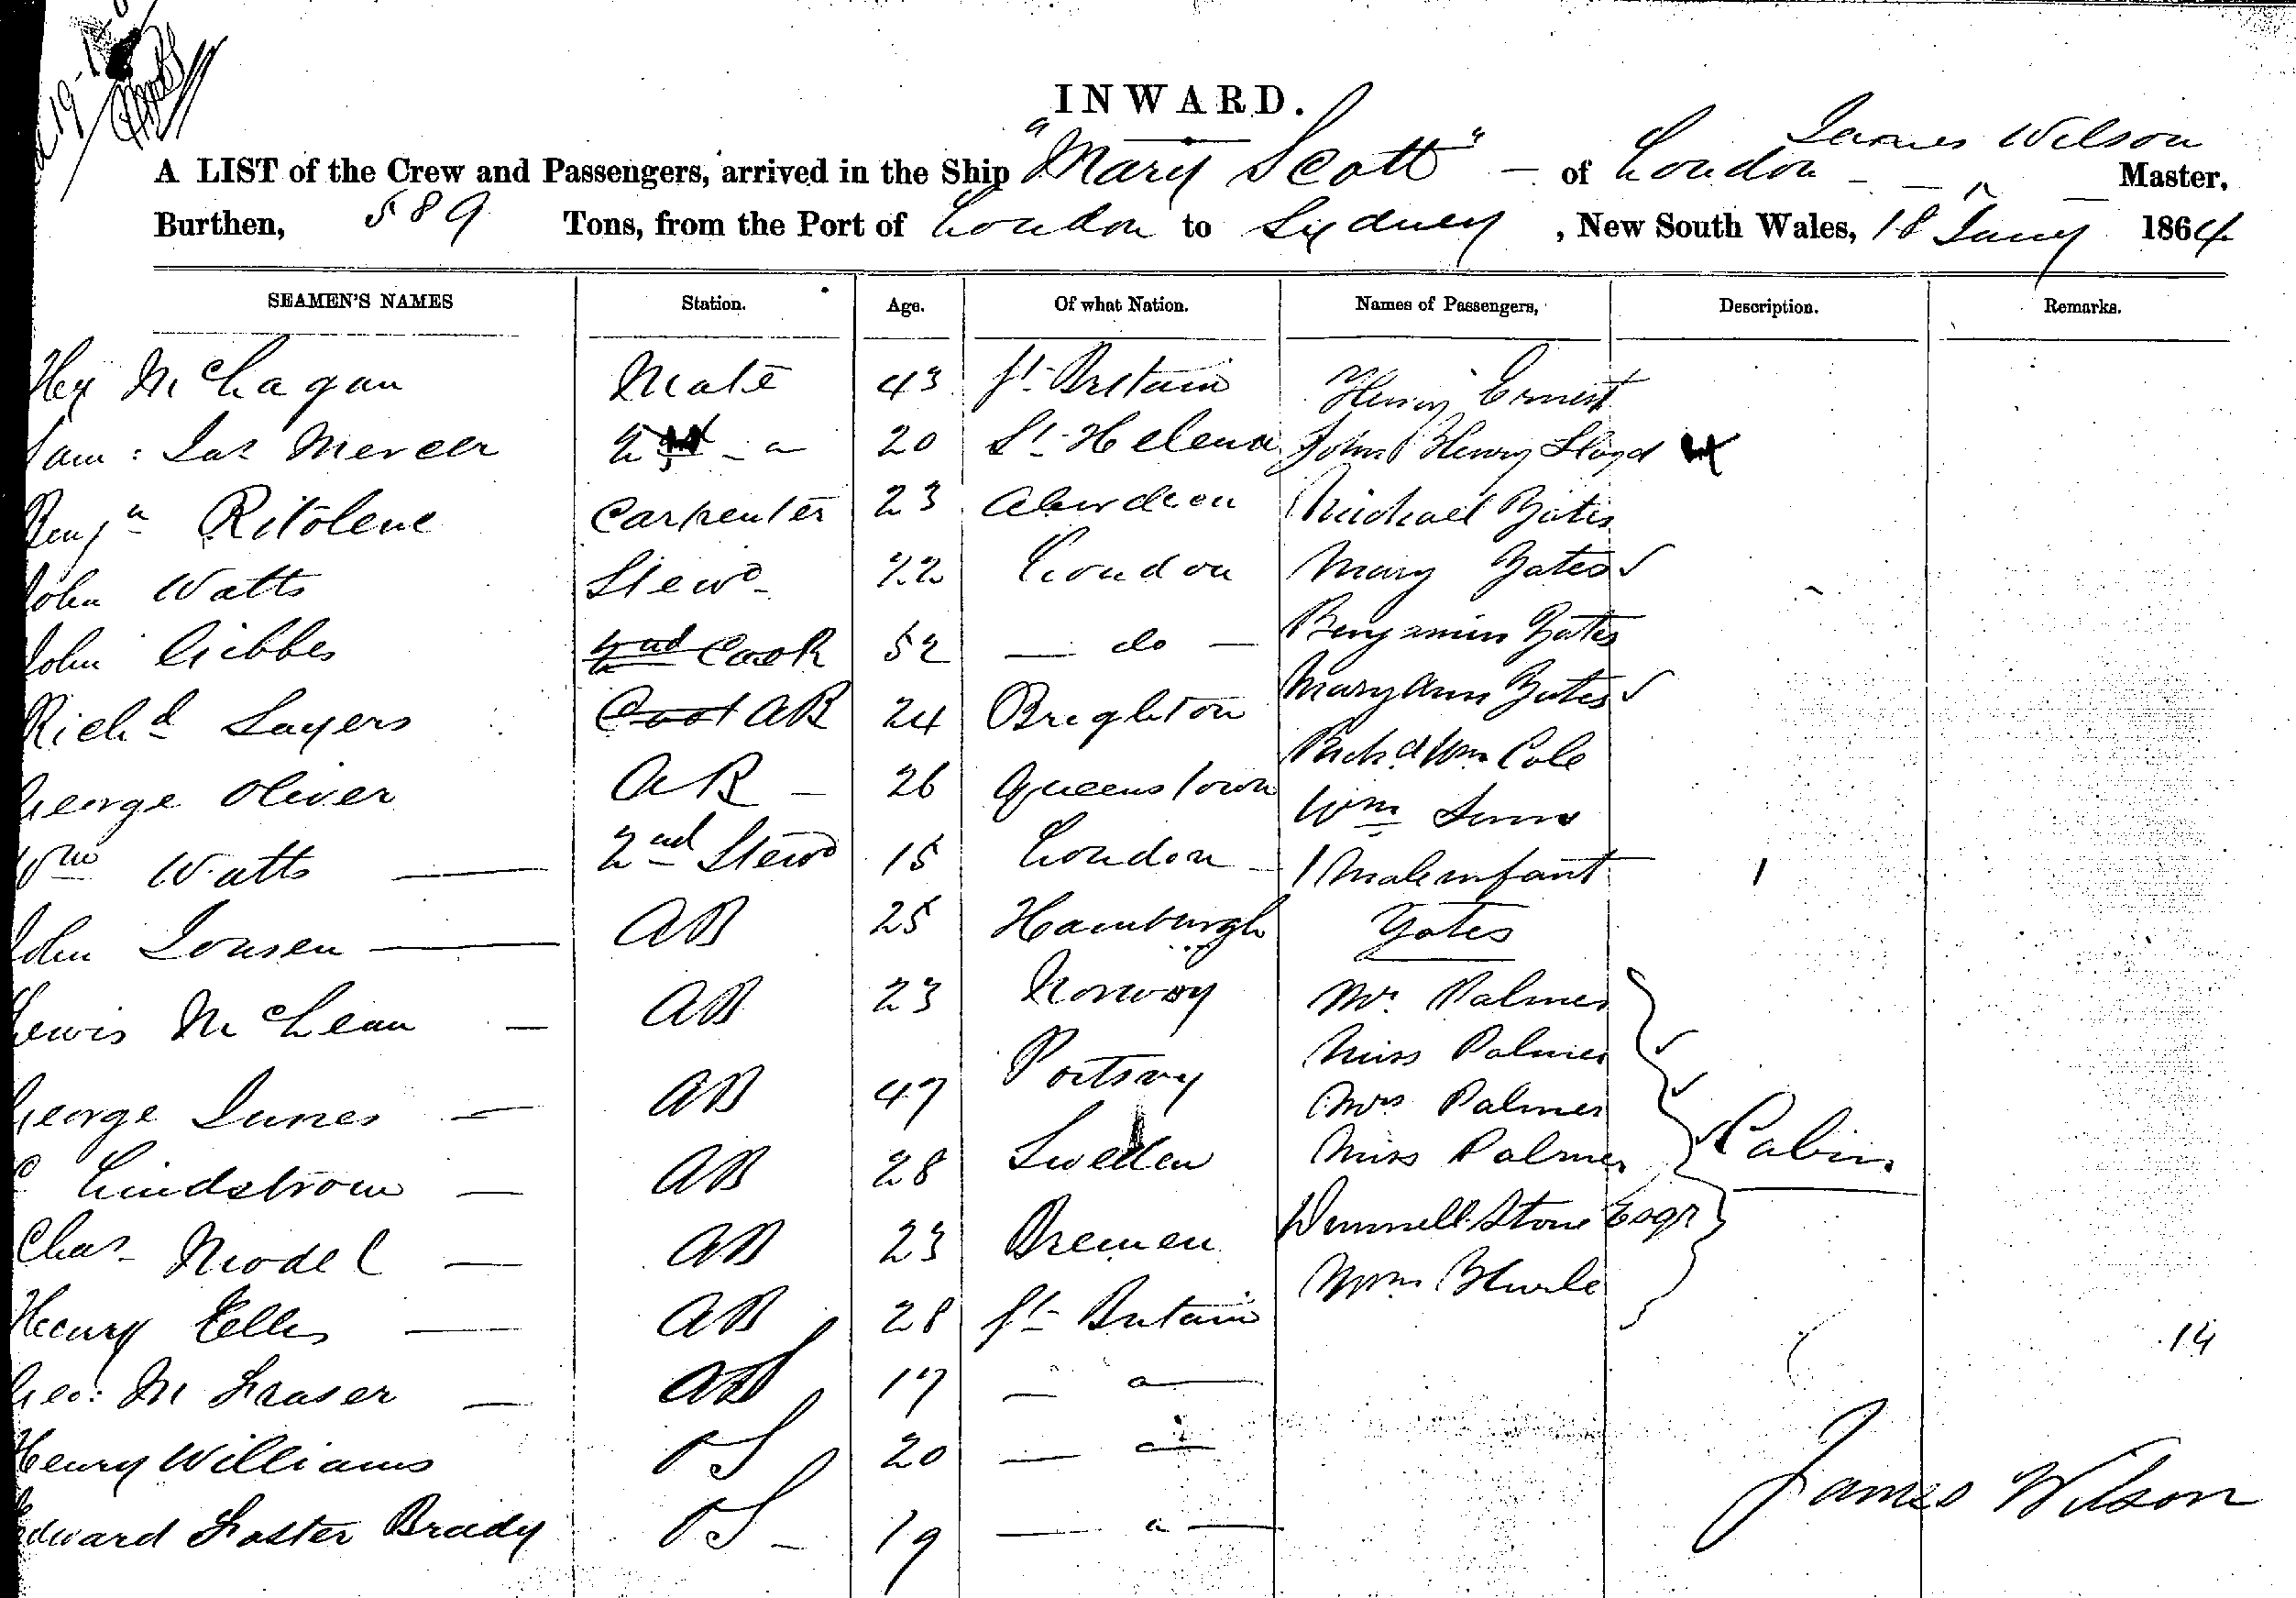 INWARD.
James Wilson
A LIST of the Crew and Passengers, arrived in the Ship "Mary Scott" - of London - - Master,
Burthen, 589 Tons, from the Port of London to Sydney, New South Wales, 18 Jany 1864
SEAMEN'S NAMES Station. Age. Of what Nation. Names of Passengers, Description. Remarks.
Alex McLagan Mate 43 Gt Britain Henry Ernest
Sam: Jas Mercer 2nd - " 20 St Helena John Henry Lloyd
Benjn Carpenter 23 Aberdeen Michael Yates
John Watts Stewd 22 London Mary Yates
John Gibbes 2nd Cook 52 - do - Benjamin Yates
Richd Sayers Cook AB 24 Brighton Mary Ann Yates
George Oliver AB - 26 Queenstown Richd Wm Cole
Wm Watts 2nd Stewd 15 London Wm
1 Male infant 1
John Jonsen AB 25 Hamburgh Yates
Lewis McLean AB 23 Norway Mr. Palmer
Miss Palmer
George Innes AB 47 Portsoy Mrs Palmer
C Lindstrom AB 28 Sweden Miss Palmer Cabin
Chas Model AB 23 Bremen Stone Esqr
Henry Ellis AB 28 Gt Britain
14
Geo: M Fraser 17 - " -
Henry Williams OS 20 - " -
Edward Foster Brady OS - 19 - " -
James Wilson